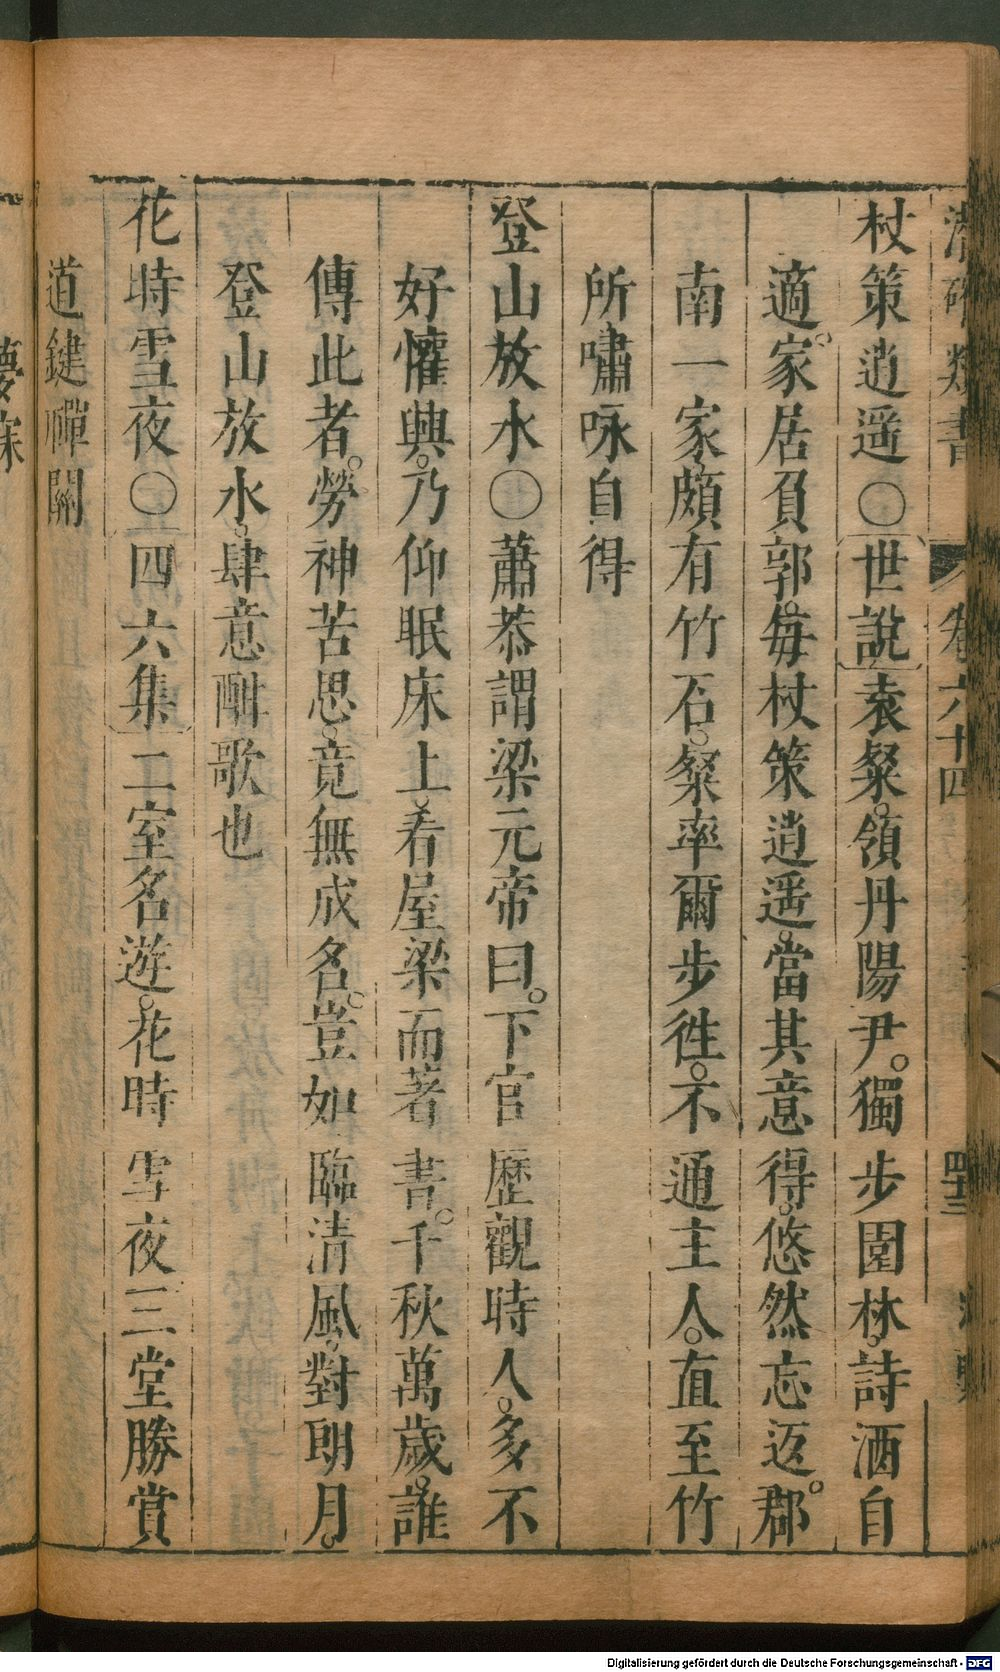 杖策逍遥〇世說袁粲。領丹陽尹。獨步園林。詩酒自
適。家居負郭。每杖策逍遥。當其意得。悠然忘返。郡
南一家頗有竹石。粲率爾步徃。不通主人。直至竹
所嘯咏自得
登山放水〇蕭恭謂梁元帝曰。下官歷觀時人。多不
好懽興。乃仰眠床上。看屋梁而著書。千秋萬歲。誰
傳此者。勞神苦思。竟無成名。豈如臨清風。對朗月。
登山放水。肆意酣歌也
花時雪夜〇四六集二室名遊。花時雪夜三堂勝賞
道鍵禪關
卷六十四
Digitalisierung gefördert durch die Deutsche Forschungsgemeinschaft - DFG